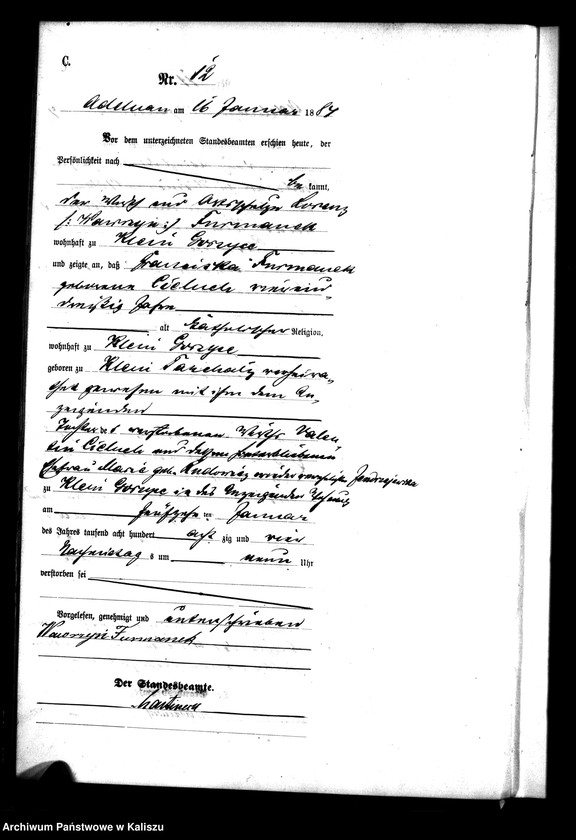 C.
Nr. 12
Adelnau am 16 Januar 1884
Vor dem unterzeichneten Standesbeamten erschien heute, der
Persönlichkeit nach
be kannt,
der Wirth und Ortsschulze Lorenz
/: Wawrzyn :/ Furmanek
wohnhaft zu Klein Gorzyce
und zeigte an, daß Franciska Furmanek
geborene Cieluch vierund
dreißig Jahre
alt katholischer Religion,
wohnhaft zu Klein Gorzyce
geboren zu Klein verheira-
thet gewesen mit ihm dem An-
zeigenden
Tochter verstorbenen Wirths Valen
tin Cieluch und dessen hinterbliebenen
Ehefrau Maria geb. wieder
zu Klein Gorzyce in des Anzeigenden Behausung
am fünfzehn ten Januar
des Jahres tausend acht hundert acht zig und vier
Nachmittag s um neun Uhr
verstorben sei
Vorgelesen, genehmigt und unterschrieben
Wawrzyn Furmanek
Der Standesbeamte.
Archiwum Państwowe w Kaliszu